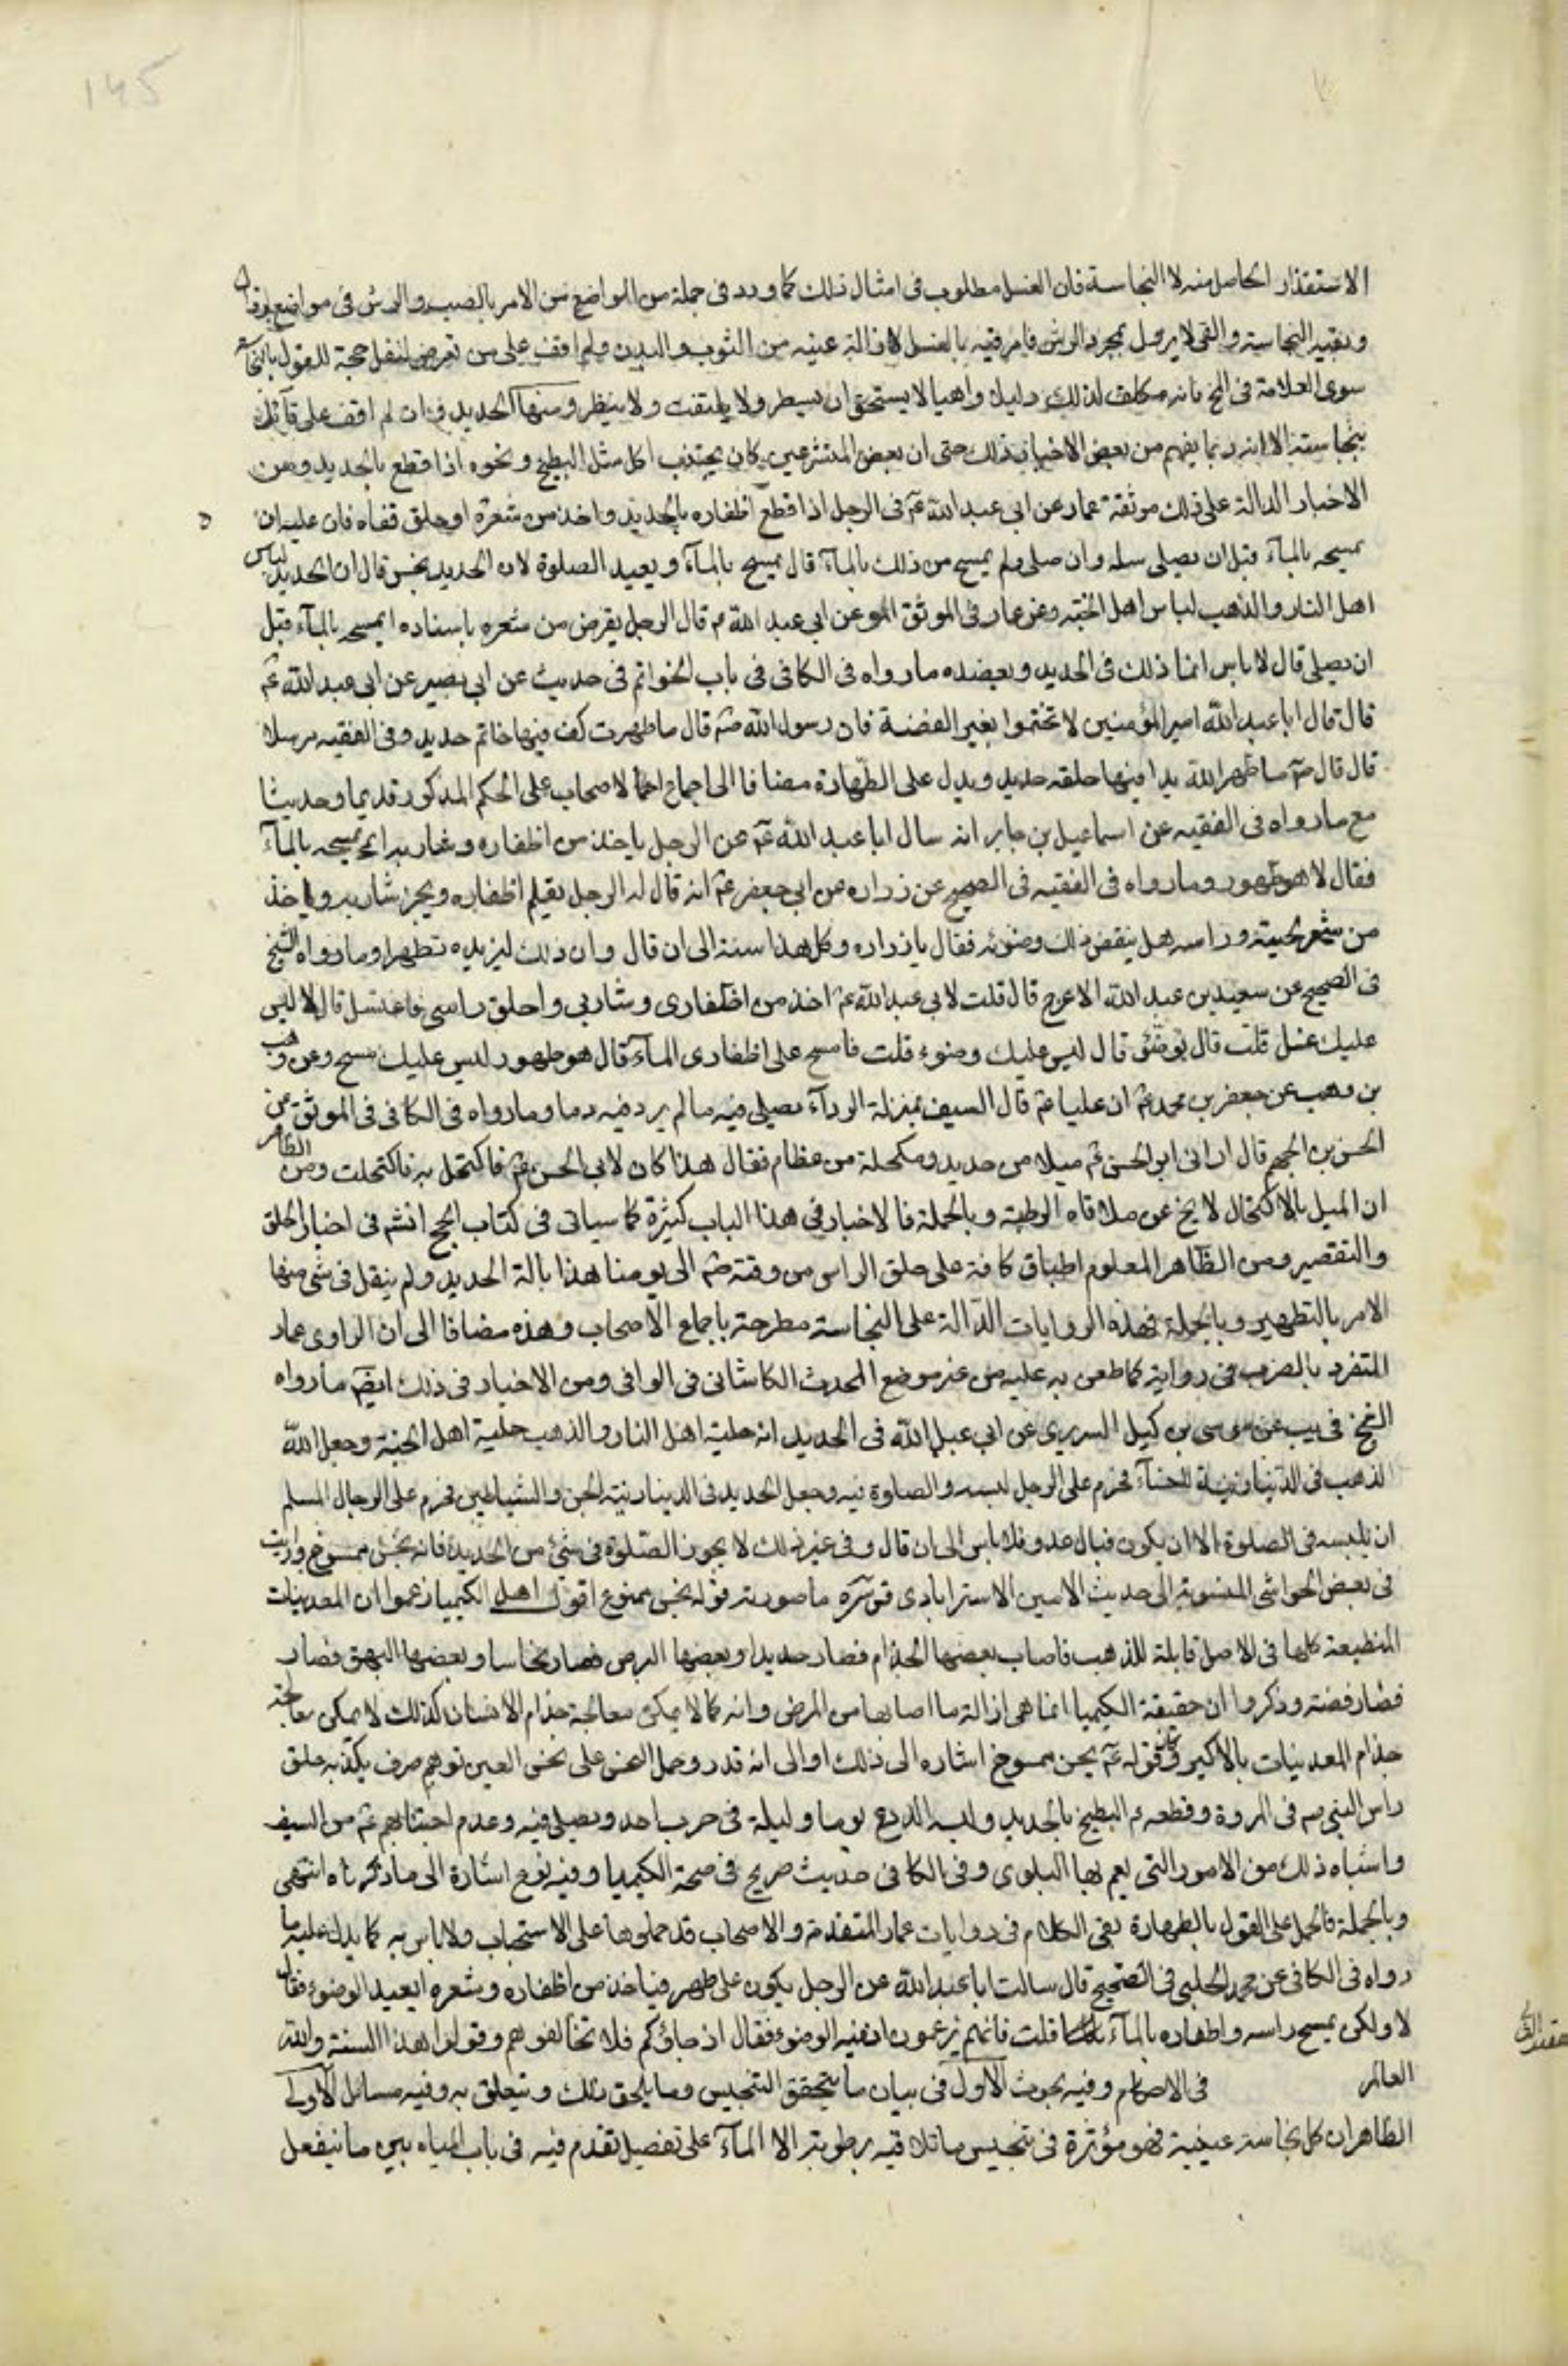 145
الاستقذار الحاصل منه لا النجاسة فان الغسل مطلوب فى امثال ذلك كما ورد فى جملة من المواضع من الامر بالصب والرش فى مواضع
النجاسة والقى لا يزول بمجرد الرش فامر فيه بالغسل لازالة عينه من الثوب والبدن ولم اقف على من تعرض لنقل حجة للقول بالنجاسة
سوى العلامة فى المخ فانه مكلف لذلك دليلا واهيا لا يستحق ان يسطر ولا يلتفت ولا ينظر ومنها الحديد فان لم اقف على قائل
بنجاسته الا انه ربما يفهم من بعض الاخبار ذلك حتى ان بعض المتشرعين كان يجتنب اكل مثل البطيخ ونحوه اذا قطع بالحديد ومن
الاخبار الدالة على ذلك موثقة عمار عن ابى عبد الله عم فى الرجل اذا قطع اظفاره بالحديد واخذ من شعره او حلق قفاه فان عليه ان
يمسحه بالمآء قبل ان يصلى سئل وان صلى ولم يمسح من ذلك بالمآء قال يمسح بالمآء ويعيد الصلوة لان الحديد نجس قال ان الحديد لباس
اهل النار والذهب لباس اهل الجنة وعن عمار فى الموثق عن ابى عبد الله عم قال الرجل يقرض من شعره باسنانه ايمسحه بالمآء قبل
ان يصلى قال لا باس انما ذلك فى الحديد ويعضده ما رواه فى الكافى فى باب الخواتم فى حديث عن ابى بصير عن ابى عبد الله عم
قال قال ابا عبد الله امير المؤمنين لا تختموا بغير الفضة فان رسول الله صم قال ما طهرت كف فيها خاتم حديد وفى الفقيه مرسلا
قال قال صم ما طهر الله يدا فيها حلقه حديد ويدل على الطهارة مضافا الى اجماع الاصحاب على الحكم المذكور قديما وحديثا
مع ما رواه فى الفقيه عن اسماعيل بن جابر انه سال ابا عبد الله عم عن الرجل ياخذ من اظفاره وشاربه ايمسحه بالمآء
فقال لا هو طهور وما رواه فى الفقيه فى الصحيح عن زراره عن ابى جعفر عم انه قال له الرجل يقلم اظفاره ويجز شاربه وياخذ
من شعر لحيته وراسه هل ينقض ذلك وضوئه فقال يا زراره وكل هذا سنة الى ان قال وان ذلك ليزيده تطهرا وما رواه الشيخ
فى الصحيح عن سعيد بن عبد الله الاعرج قال قلت لابى عبد الله عم اخذ من اظفارى وشاربي واحلق راسى فاغتسل قال لا ليس
عليك غسل قلت قال توضئ قال ليس عليك وضوء قلت فامسح على اظفارى المآء قال هو طهور ليس عليك مسح وعن وهب
بن وهب عن جعفر بن محمد عم ان عليا عم قال السيف بمنزلة الردآء يصلى فيه ما لم ير دفيه دما وما رواه فى الكافى فى الموثق عن
الحسن بن الجهم قال ارانى ابو الحسن عم ميلا من حديد ومكحلة من عظام فقال هذا كان لابى الحسن عم فاكتحل به فاكتحلت ومن الظاهر
ان الميل بالاكتحال لا يخ عن ملاقاه الرطوبة وبالجملة فالاخبار فى هذا الباب كثيرة كما سياتى فى كتاب الحج انشم فى اخبار الحلق
والتقصير ومن الظاهر المعلوم اطباق كافة على حلق الراس من وقته صم الى يومنا هذا بالة الحديد ولم ينقل فى شئ منها
الامر بالتطهير وبالجملة فهذه الروايات الدالة على النجاسة مطرحة باجماع الاصحاب وهذه مضافا الى ان الراوى عمار
المتفرد بالضرب فى رواية كما طعن به عليه من غير موضع المحدث الكاشانى فى الوافى ومن الاخبار فى ذلك ايضم ما رواه
الشيخ فى يب عن موسى بن كيل السريرى عن ابى عبد الله فى الحديد انه حلية اهل النار والذهب حلية اهل الجنة وجعل الله
الذهب فى الدنيا زينة للنسآء فحرم على الرجل لبسه والصلوة فيه وجعل الحديد فى الدينا زينة الجن والشياطين فحرم على الرجال المسلم
ان يلبسه فى الصلوة الا ان يكون قبال عدو فلا باس الى ان قال وفى غير ذلك لا يجوز الصلوة فى شئ من الحديد فانه نجس ممسوخ ورايت
فى بعض الحواشى المنسوبة الى حديث الامين الاسترابادى قدسره ما صورته قوله نجس ممنوع اقول اهل الكيميا زعموا ان المعدنيات
المنطبعة كلها فى الاصل قابلة للذهب فاصاب بعضها الجذام فصار حديدا وبعضها البرص فصار نحاسا وبعضها البهق فصار
فصار فضة وذكروا ان حقيقة الكيميا انما هى ازالة ما اصابها من المرض وانه كما لا يمكن معالجة جذام الانسان كذلك لا يمكن معالجة
جذام المعدنيات بالاكير فى قوله عم نجس ممسوخ اشاره الى ذلك او الى انه قدر وحمل النجس على نجس العين توهم صرف يكذبه حلق
راس النبى صم فى المروة وقطعه عم البطيخ بالحديد ولبسه الدرع يوما وليلة فى حرب احد ويصلى فيه وعدم اجتنابهم عم من السيف
واشباه ذلك من الامور التى يعم بها البلوى وفى الكافى حديث صريح فى صحة الكيميا وفيه نوع اشارة الى ما ذكرناه انتهى
وبالجملة فالحمل على القول بالطهارة بقى الكلام فى روايات عمار المتقدمة والاصحاب قد حملوها على الاستحباب ولا باس به كما يدل عليه ما
رواه فى الكافى عن محمد الحلبى فى الصحيح قال سالت ابا عبد الله عن الرجل يكون على طهر فياخذ من اظفاره وشعره ايعيد الوضوء فقال
لا ولكن يمسح راسه واظفاره بالمآء قلت فانهم يزعمون ان فيه الوضوء فقال ان خاصموكم فلا تخالفوهم وقولوا هذا السنة والله
العالم فى الاحكام وفيه بحوث الاول فى بيان ما يتحقق التنجيس وما يلحق بذلك ويتعلق به وفيه مسائل الاولى
الظاهر ان كل نجاسة عينية فهو مؤثرة فى تنجيس ما تلاقيه برطوبة الا المآء على تفصيل تقدم فيه فى باب المياه بين ما ينفعل